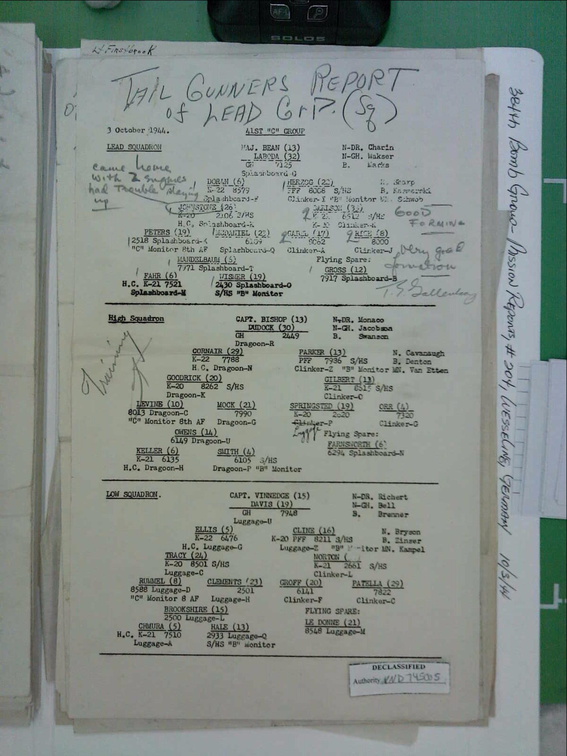 SOLOS
TAIL GUNNERS REPORT
of LEAD Grp. (Sq)
3 October 1944. 41ST "C" GROUP
LEAD SQUADRON MAJ. BEAN (13) N-DR. Charin
LABODA (32) N-GH. Wakser
GH 7125 B. Marks
Splashboard-G
came home
with 2 engines
had trouble
up
DORAN (6) HERZOG (22) N. Sharp
K-22 8579 PFF 8008 S/HS
Splashboard-F Clinker-Y "B" Monitor
(26)
K-20 2106 S/HS
H.C. Splashboard-K
GOOD
FORMING
PETERS (19) (17) (8)
2518 Splashboard-K 6109 9062 8000
"C" Monitor 8th AF Splashboard-Q Clinker-A
MANDELBAUM (5) Flying Spare:
7971 Splashboard-T GROSS (12)
7917 Splashboard-B
very good
formation
FAHR (6) WISMER (19)
H.C. K-21 7521 2430 Splashboard-O
Splashboard-M S/HS "B" Monitor
High Squadron CAPT. BISHOP (13) N-DR. Monaco
DUDOCK (30) N-GH. Jacobson
GH 2449 B. Swanson
Dragon-R
Training
CORNAIR (29) PARKER (13) N. Cavanaugh
K-22 7788 PFF 7936 S/HS B. Denton
H.C. Dragon-N Clinker-Z "B" Monitor MN. Van Etten
GOODRICK (20) GILBERT (13)
K-20 8262 S/HS K-21 S/HS
Dragon-K Clinker-O
LEVINE (10) MOCK (21) SPRINGSTED (19) ORR (4)
8013 Dragon-C 7990 K-20 7320
"C" Monitor 8th AF Dragon-G Clinker-P Clinker-G
OWENS (14) Flying Spare:
6149 Dragon-U FARNSWORTH (6)
6294 Splashboard-N
KELLER (6) SMITH (4)
K-21 6135 6105 S/HS
H.C. Dragon-H Dragon-P "B" Monitor
LOW SQUADRON. CAPT. VINNEDGE (15) N-DR. Richert
DAVIS (19) N-GH. Bell
GH 7948 B. Brenner
Luggage-U
ELLIS (5) CLINE (16) N. Bryson
K-22 6476 K-20 PFF 8211 S/HS B. Zinser
H.C. Luggage-G Luggage-Z "B" MN. Kampel
TRACY (24) NORTON
K-20 8501 S/HS K-21 2661 S/HS
Luggage-C Clinker-L
RUSSEL (8) CLEMENTS (23) GROFF (20) PATELLA (29)
8588 Luggage-D 2501 6141 7822
"C" Monitor 8 AF Luggage-H Clinker-F Clinker-C
BROOKSHIRE (15) FLYING SPARE:
2500 Luggage-L LE DONNE (21)
8548 Luggage-M
CHMURA (5) HALE (13)
H.C. K-21 7510 2933 Luggage-Q
Luggage-A S/HS "B" Monitor
DECLASSIFIED
Authority NND 745005
384th Bomb Group Mission Reports, # 204, WESSELING, GERMANY 10/3/44